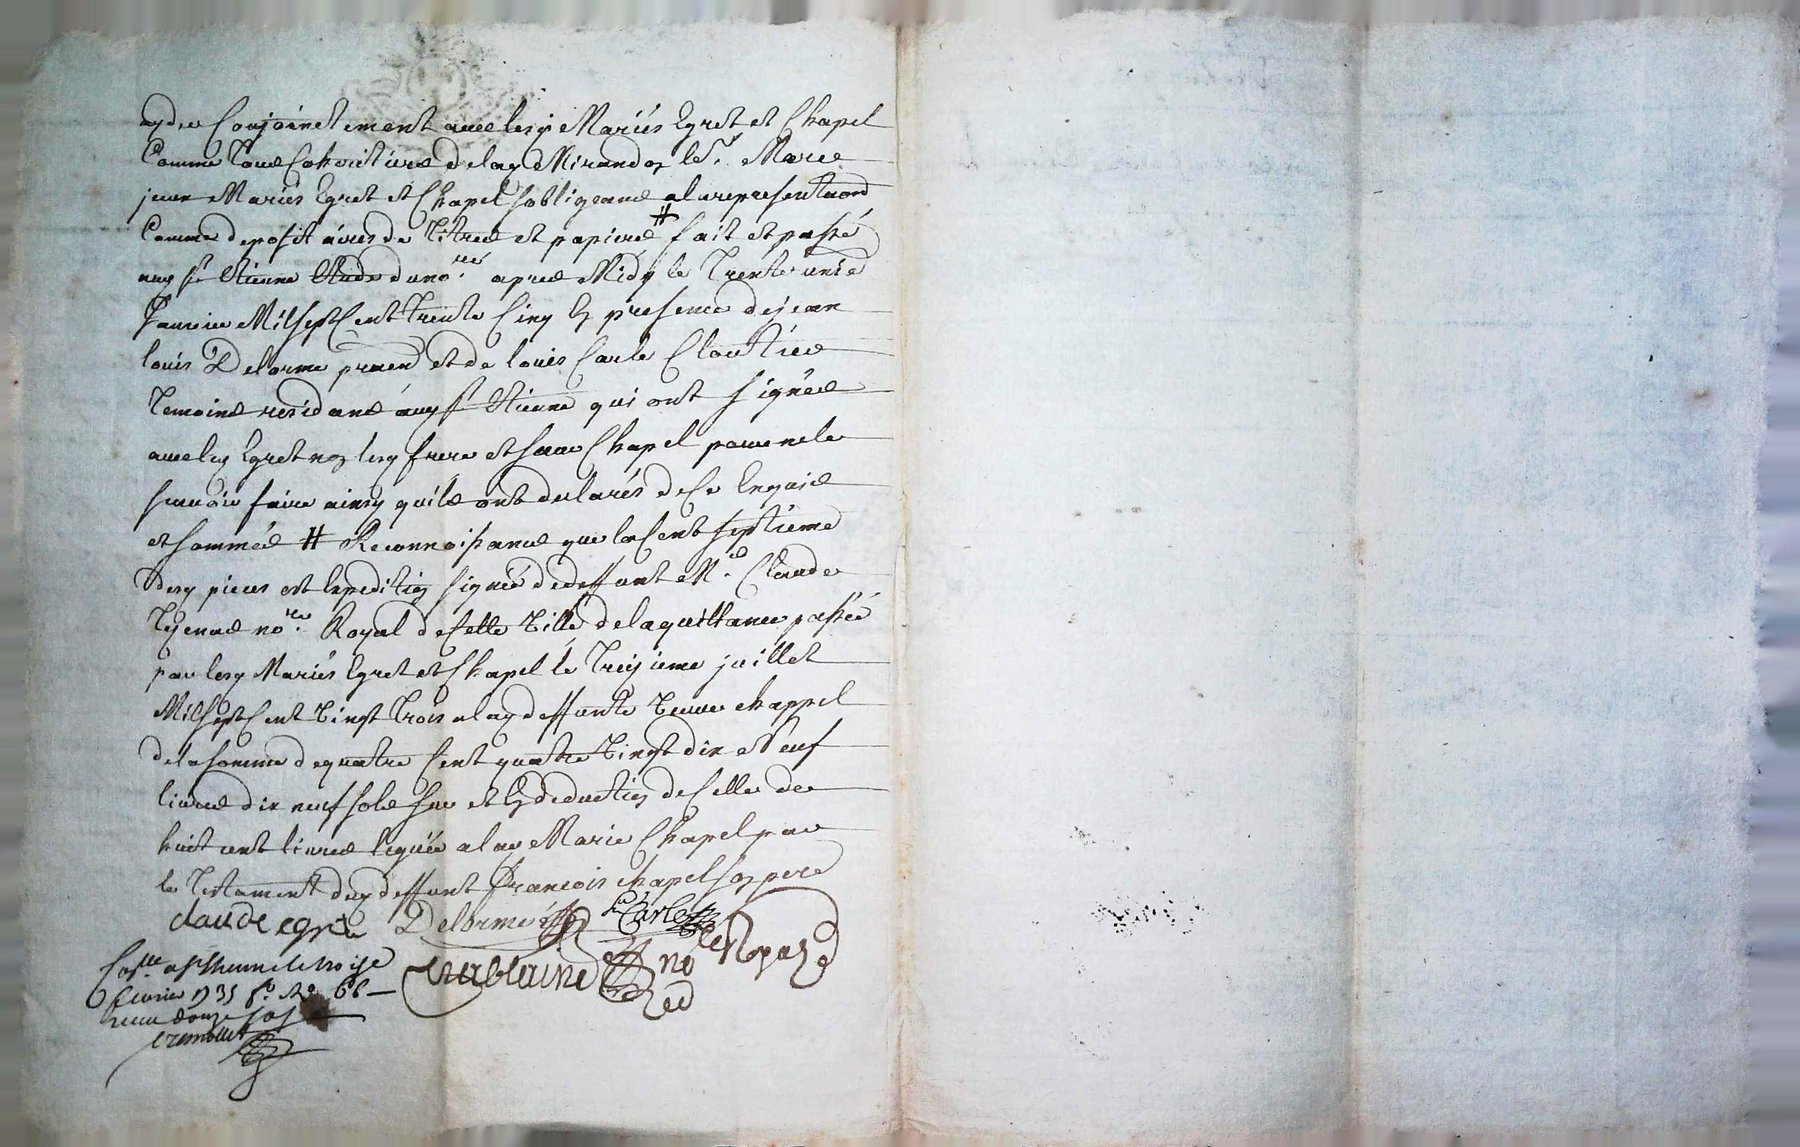 Conjoinctement avec lesd Mariés Egret et Chapel
Comme Cohoritiers de lad
Mariés Egret et Chapel sobligeans a la representaond
Comme depositaires de Titres et papiers # fait et passé
aud st Etienne Etude du nore apres Midy le Trente unie
Janvier Mil sept Cent trente Cinq En presence de jean
louis Delorme et de louis Carle Cloutier
Temoins residans aud st Etienne qui ont signés
avec led Egret non lesd frere et sœur Chapel pour ne le
scavoir faire ainsy quils ont declarés de Ce Enquis
et sommés # Reconnoissance que la Cent septieme
desd pieces est lexpedition signé de deffunt Me Claude
nore Royal de Cette Ville de la quittance passée
par lesd Mariés Egret et Chapel le Treisieme juillet
Mil sept Cent Vingt Trois a lad deffunte Veuve chappel
de la somme de quatre Cent quatre Vingt dix et neuf
livres dix neuf sols sur et En deduction de Celle de
huit cent livres leguée a lad Marie Chapel par
le Testament dud deffunt francois chapel son pere
claude egret Delorme Carle
no re Royal
Coll a st Etienne le
fevrier 1735 fo Re 68
Receu douze sols